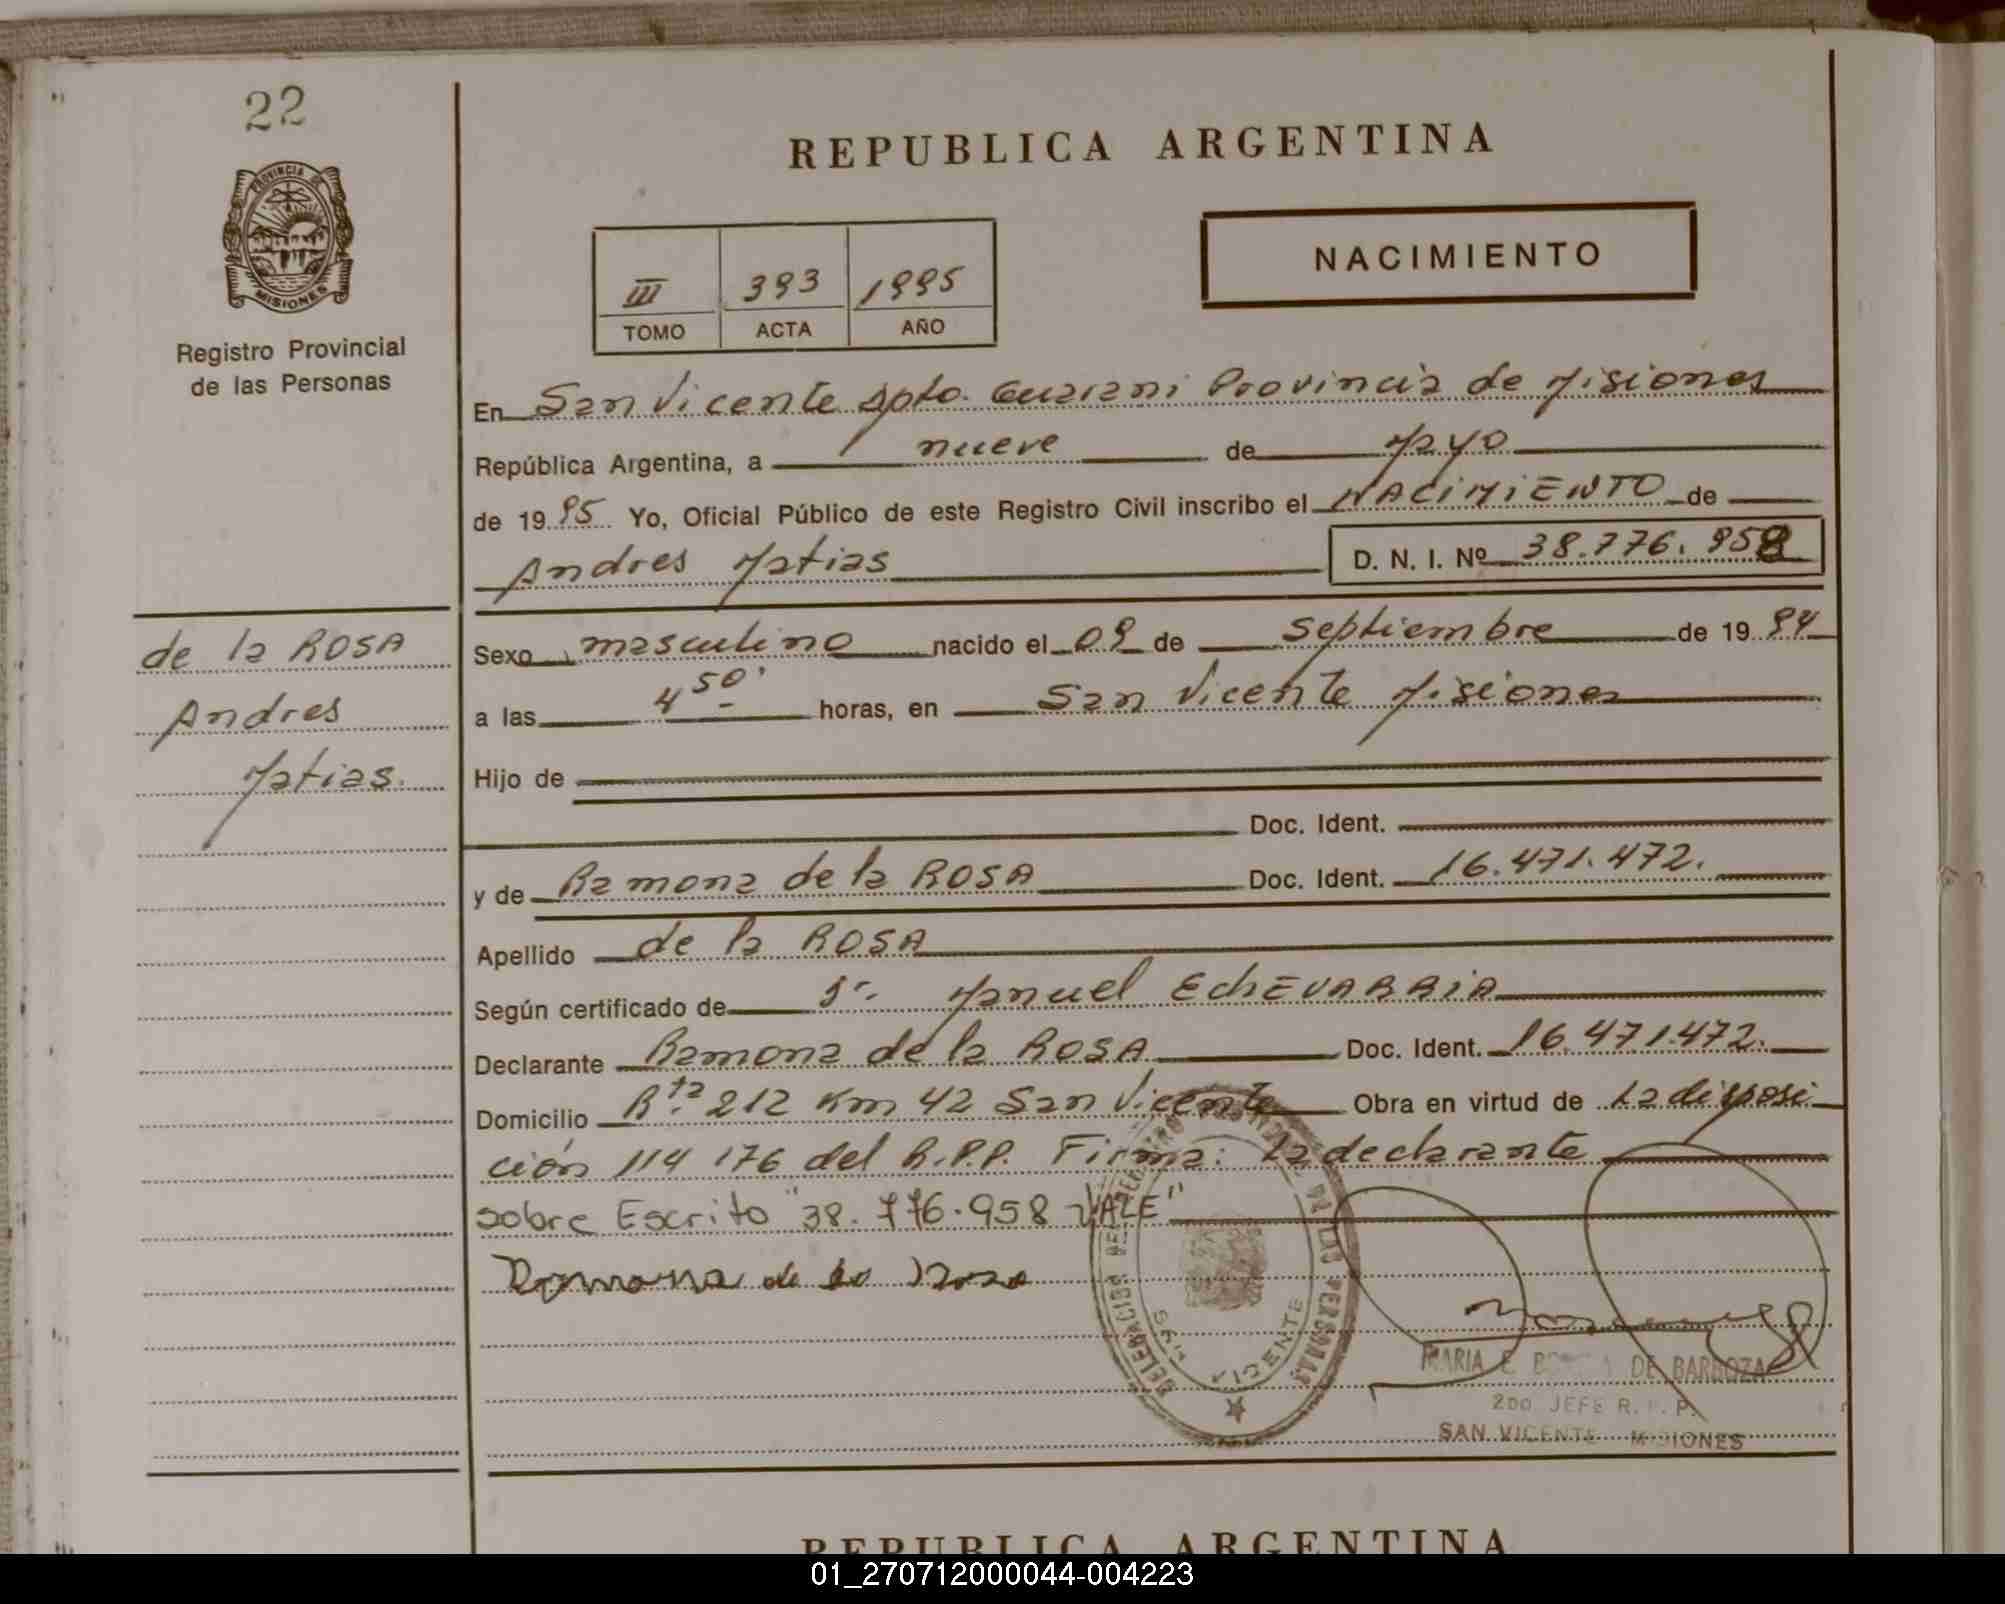 22
PROVINCIA DE
MISIONES
Registro Provincial
de las Personas
REPUBLICA ARGENTINA
NACIMIENTO
III 393 1995
TOMO ACTA AÑO
En San Vicente Dpto. Guarani Provincia de Misiones
República Argentina, a nueve de Mayo
de 1995 Yo, Oficial Público de este Registro Civil inscribo el NACIMIENTO de
Andres Matias D. N. I. Nº 38.776.958
de la ROSA
Andres
Matias.
Sexo masculino nacido el 09 de Septiembre de 1994
a las 4 50' horas, en San Vicente Misiones
Hijo de
Doc. Ident.
y de Ramona de la ROSA Doc. Ident. 16.471.472.
Apellido de la ROSA
Según certificado de Dr. Manuel EchEVARRiA
Declarante Ramona de la ROSA Doc. Ident. 16.471.472.
Domicilio Rta. 212 Km 42 San Vicente Obra en virtud de La disposi
ción 114 176 del R.P.P. Firma: La declarante
sobre Escrito "38.776.958 VALE"
Ramona de la Rosa
DELEGACION DEL REGISTRO PROVINCIAL DE LAS PERSONAS
SAN VICENTE
MARIA E. DE BARBOZA
2DO JEFE R. P. P.
SAN VICENTE MISIONES
REPUBLICA ARGENTINA
01_270712000044-004223